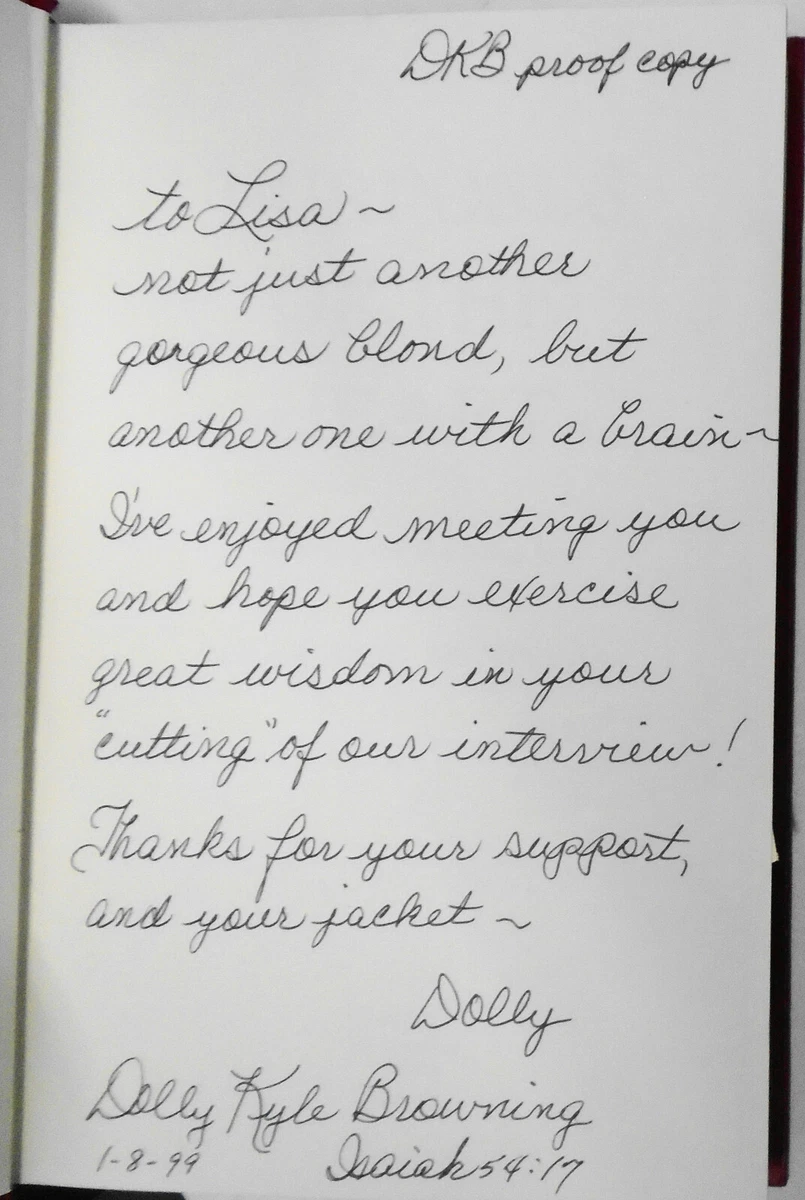 DKB proof copy
to Lisa ~
not just another
gorgeous blond, but
another one with a brain ~
I've enjoyed meeting you
and hope you exercise
great wisdom in your
"cutting" of our interview!
Thanks for your support,
and your jacket ~
Dolly
Dolly Kyle Browning
1-8-99 Isaiah 54:17